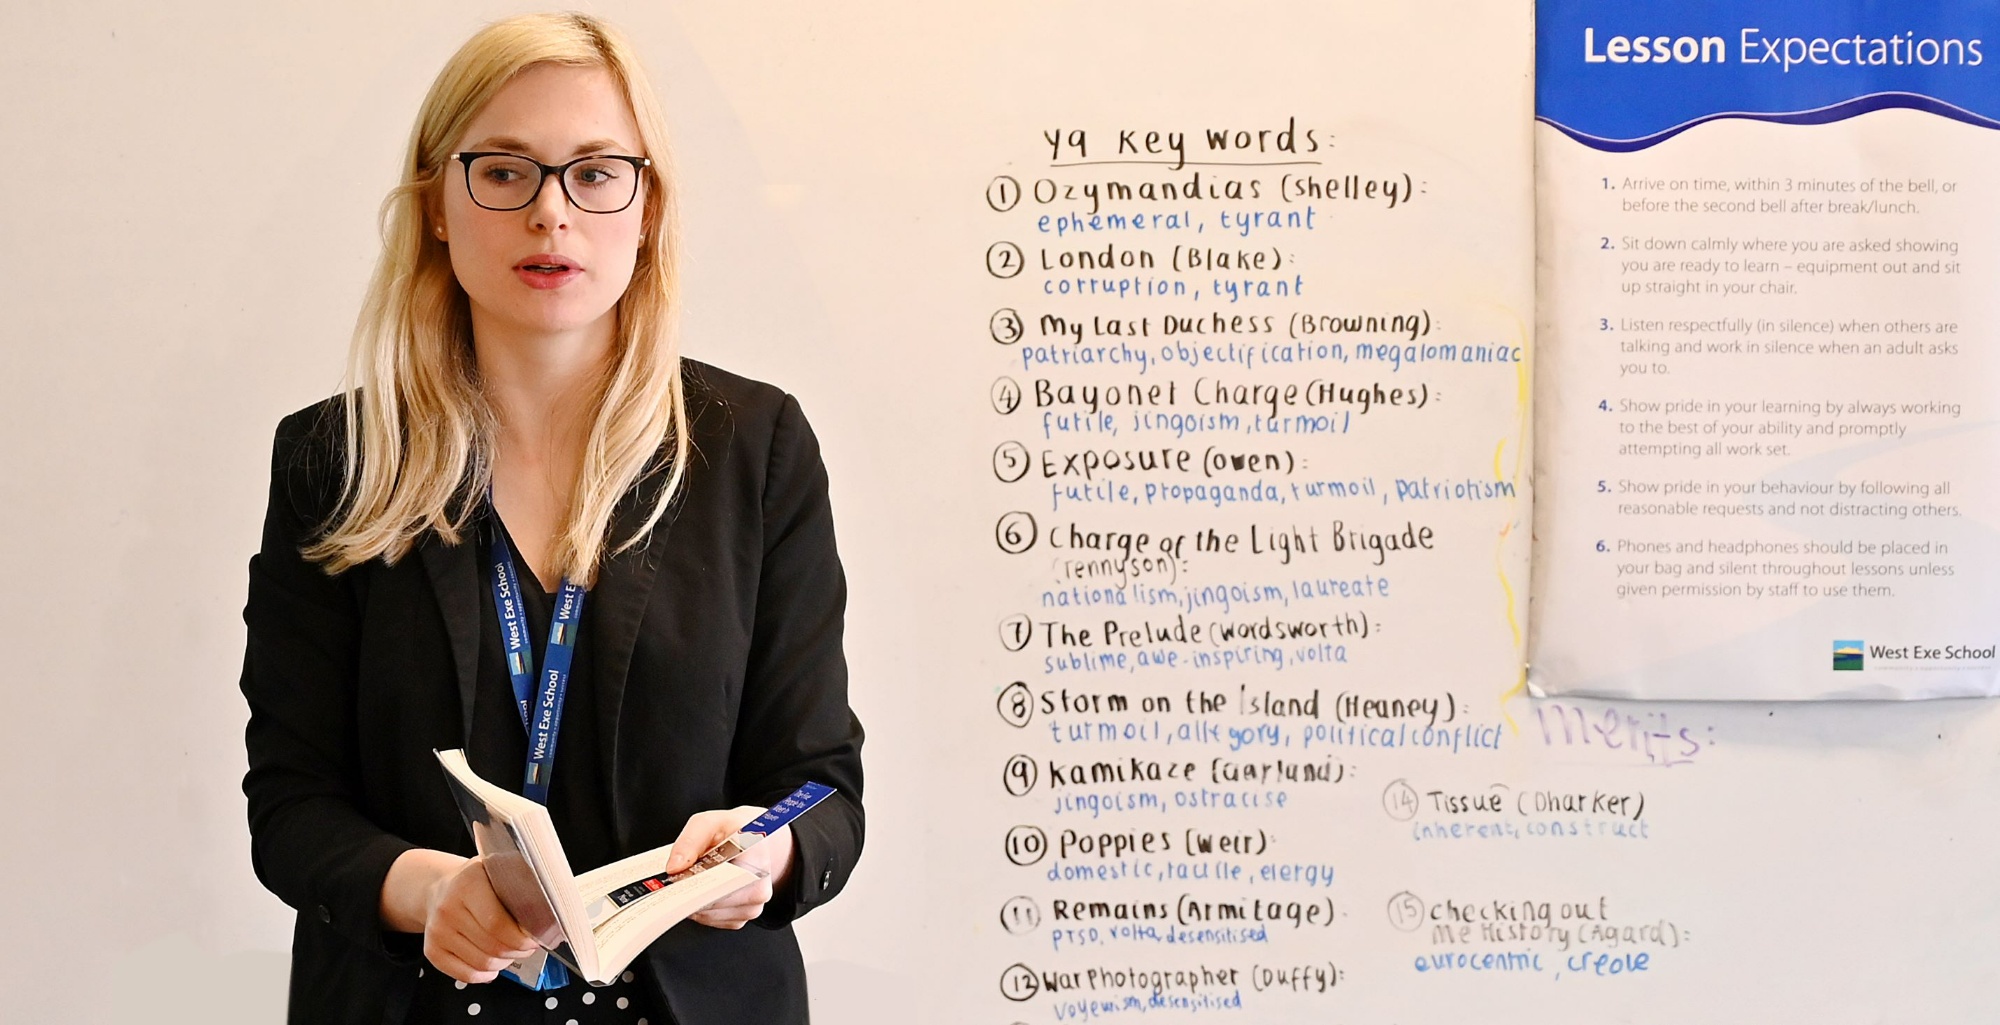 Lesson Expectations
1. Arrive on time, within 3 minutes of the bell, or
before the second bell after break/lunch.
2. Sit down calmly where you are asked showing
you are ready to learn – equipment out and sit
up straight in your chair.
3. Listen respectfully (in silence) when others are
talking and work in silence when an adult asks
you to.
4. Show pride in your learning by always working
to the best of your ability and promptly
attempting all work set.
5. Show pride in your behaviour by following all
reasonable requests and not distracting others.
6. Phones and headphones should be placed in
your bag and silent throughout lessons unless
given permission by staff to use them.
West Exe School
Y9 Key words:
1 Ozymandias (Shelley):
ephemeral, tyrant
2 London (Blake):
corruption, tyrant
3 My Last Duchess (Browning):
patriarchy, objectification, megalomaniac
4 Bayonet Charge (Hughes):
futile, jingoism, turmoil
5 Exposure (Owen):
futile, propaganda, turmoil, patriotism
6 Charge of the Light Brigade
(Tennyson):
nationalism, jingoism, laureate
7 The Prelude (Wordsworth):
sublime, awe-inspiring, volta
8 Storm on the Island (Heaney):
turmoil, allegory, political conflict
9 Kamikaze (Garland):
jingoism, ostracise
10 Poppies (Weir):
domestic, tactile, elergy
11 Remains (Armitage).
PTSD, volta, desensitised
12 War Photographer (Duffy):
voyeurism, desensitised
Merits:
14 Tissue (Dharker)
inherent, construct
15 Checking out
Me History (Agard):
eurocentric, creole
West Exe School
West Exe
West Exe School